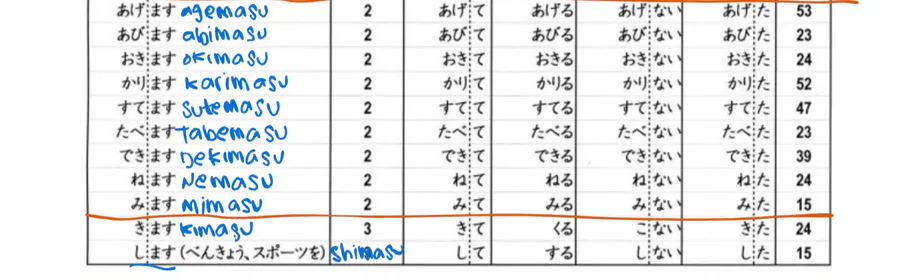 あげます agemasu 2 あげて あげる あげない あげた 53
あびます abimasu 2 あびて あびる あびない あびた 23
おきます okimasu 2 おきて おきる おきない おきた 24
かります karimasu 2 かりて かりる かりない かりた 52
すてます sutemasu 2 すてて すてる すてない すてた 47
たべます Tabemasu 2 たべて たべる たべない たべた 23
できます Dekimasu 2 できて できる できない できた 39
ねます Nemasu 2 ねて ねる ねない ねた 24
みます mimasu 2 みて みる みない みた 15
きます kimasu 3 きて くる こない きた 24
します(べんきょう、スポーツを) shimasu して する しない した 15